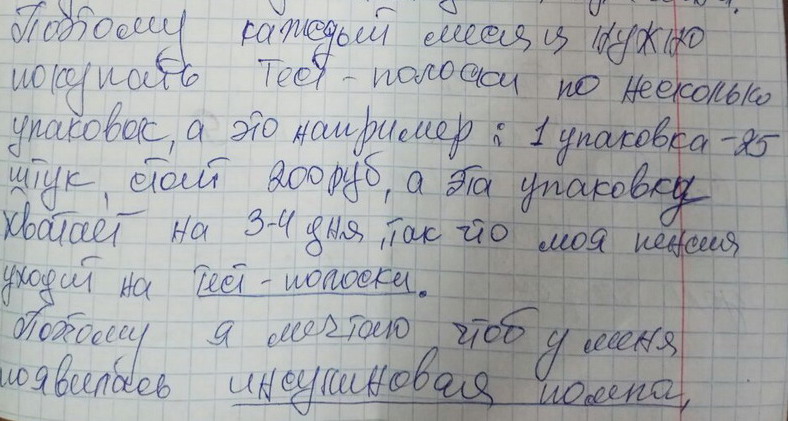 Поэтому каждый месяц нужно
покупать тест-полоски по несколько
упаковок, а это например: 1 упаковка-25
штук, стоит 200руб, а эта упаковка
хватает на 3-4 дня, так что моя пенсия
уходит на тест-полоски.
Поэтому я мечтаю чтоб у меня
появилась инсулиновая помпа,